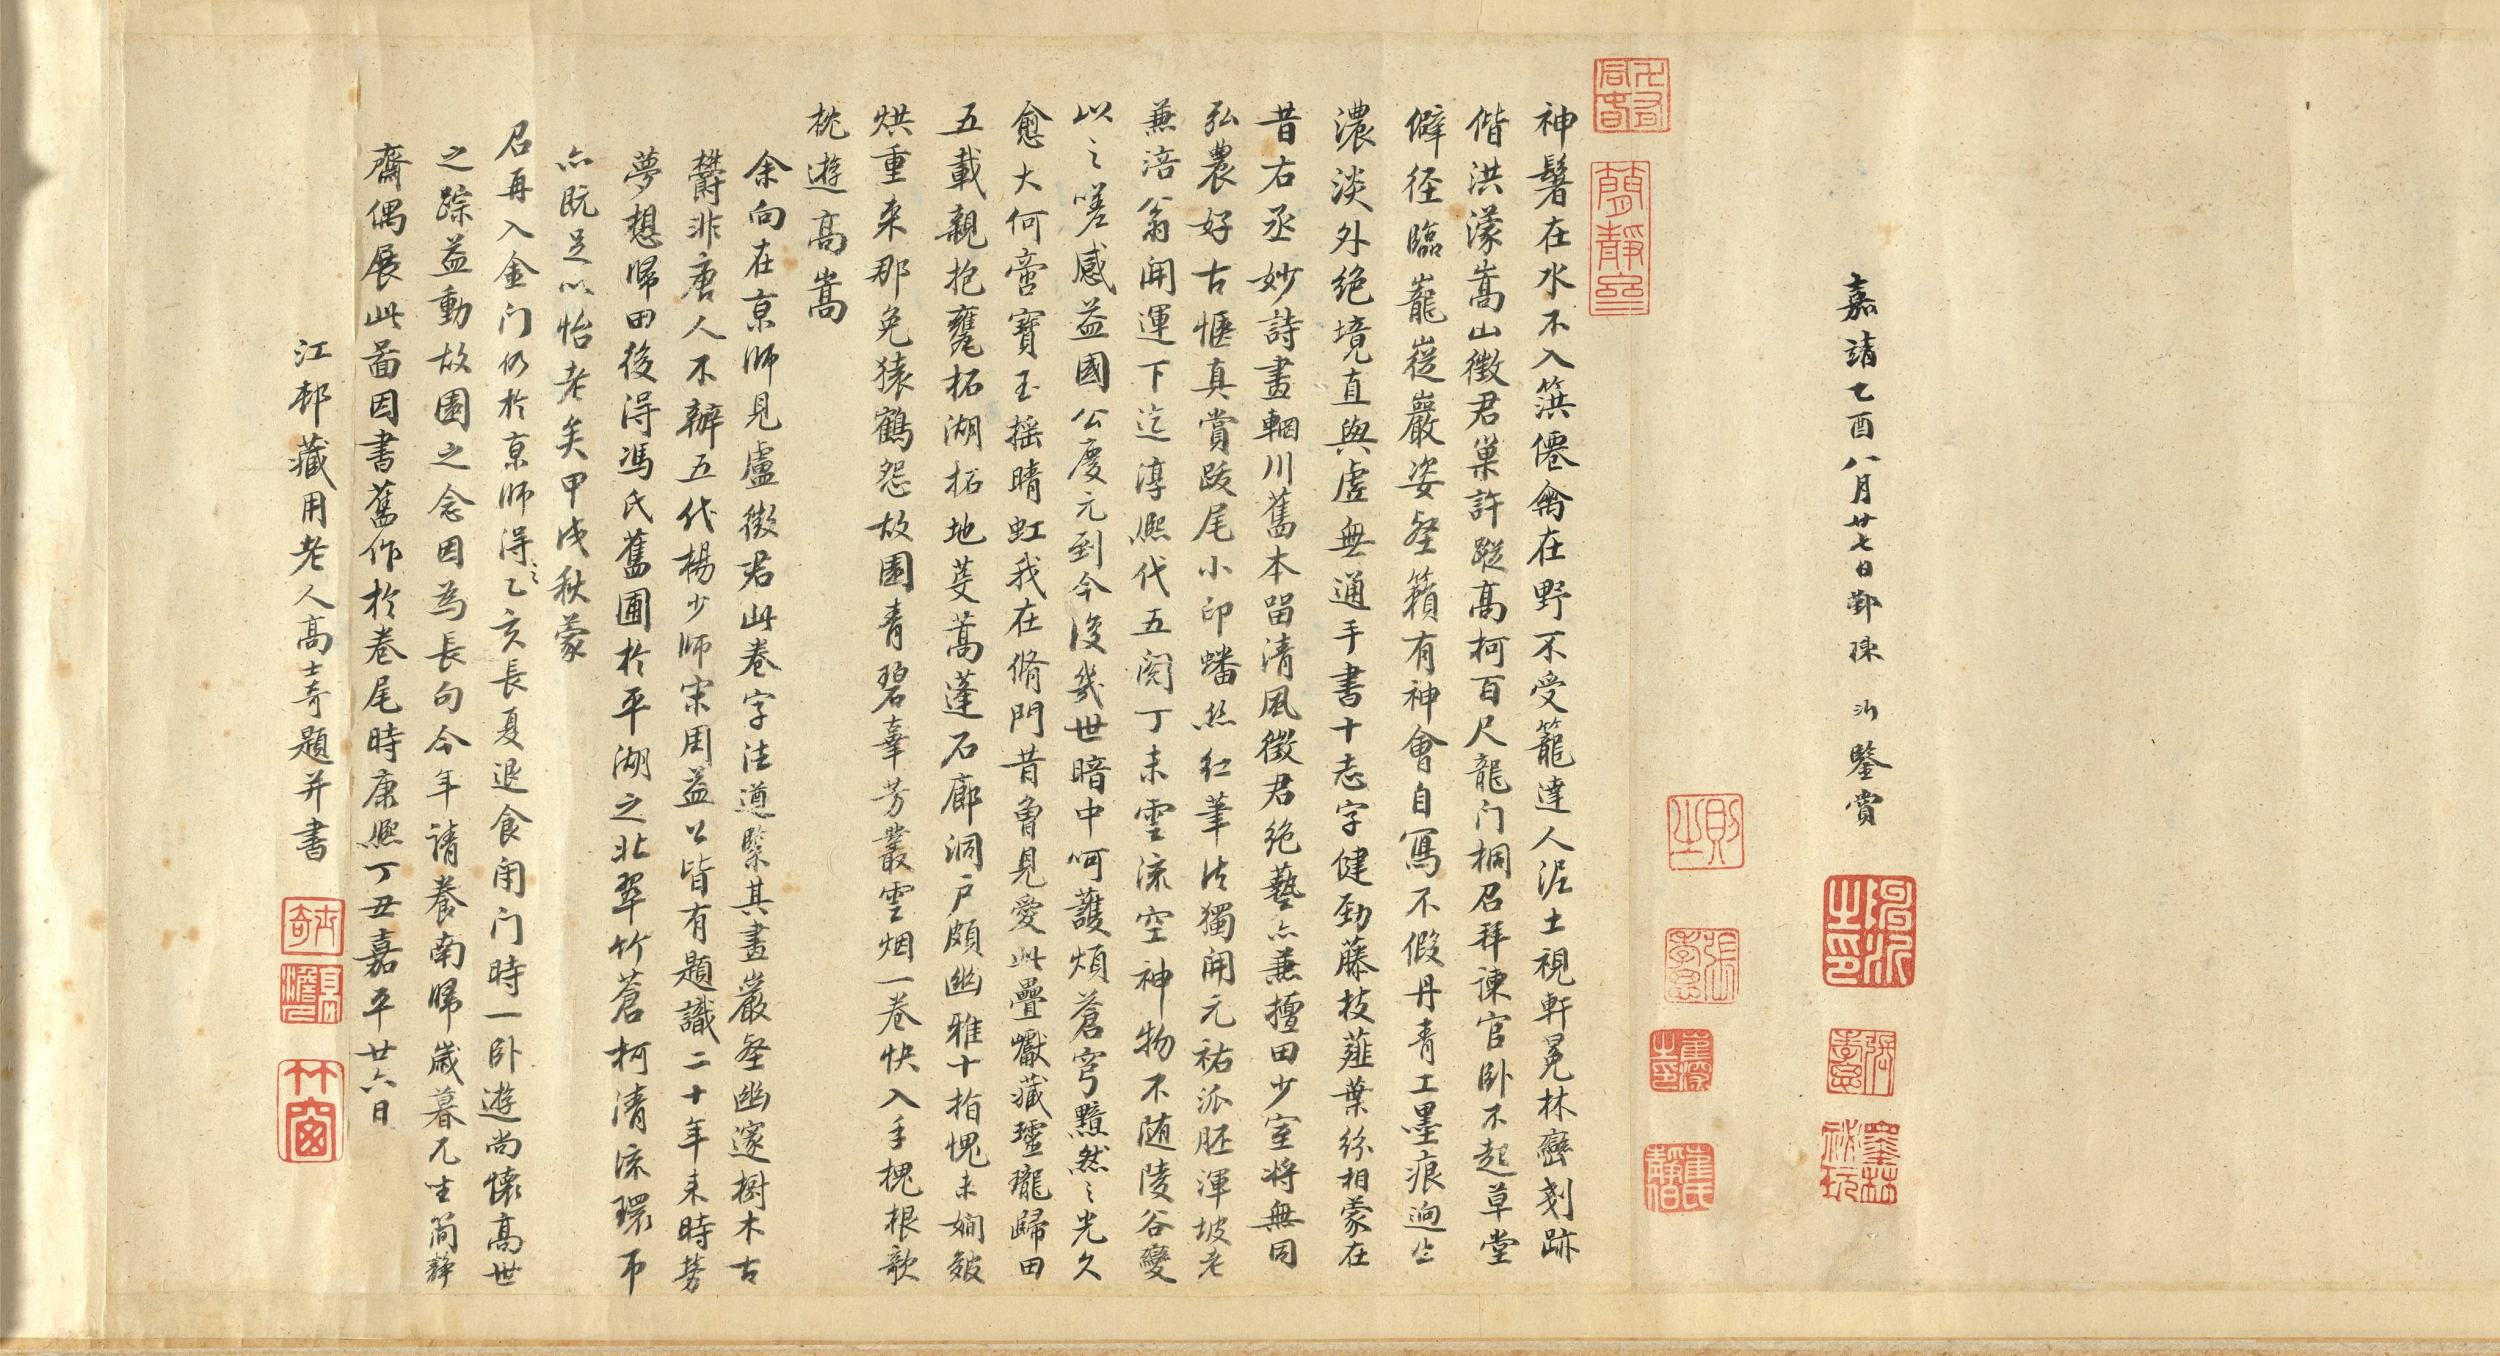 嘉靖乙酉八月廿七日鄞陳沂鑒賞
神鬐在水不入篊僊禽在野不受籠達人泥土視軒冕林巒剗跡
偕洪濛嵩山徵君巢許蹤高柯百尺龍门桐召拜諫官卧不起草堂
僻径臨巃嵸巖姿壑籟有神會自寫不假丹青工墨痕迥出
濃淡外绝境直與虛無通手書十志字健勁藤枝薤葉紛相蒙在
昔右丞妙詩畫輞川舊本留清風徵君绝藝亦兼擅田少室将無同
弘農好古愜真賞跋尾小印蟠絲红筆法獨開元祐派胚渾坡老
兼涪翁開運下迄淳熙代五閱丁未雲流空神物不随陵谷變
以之嗟感益國公慶元到今復幾世暗中呵護煩蒼穹黯然之光久
愈大何啻寶玉摇晴虹我在脩門昔曾見愛此疊巘藏瓏歸田
五載親抱甕柘湖拓地芟蒿蓬石廊洞户頗幽雅十指愧未嫺皴
烘重来那免猿鶴怨故園青碧辜芳叢雲烟一卷快入手槐根欹
枕遊高嵩
余向在京師見盧徵君此卷字法遒緊其畫巖壑幽邃樹木古
欝非唐人不辦五代楊少師宋周益公皆有題識二十年来時勞
夢想歸田後得馮氏舊圃於平湖之北翠竹蒼柯清流環帀
亦既足以怡老矣甲戌秋蒙
召再入金门仍於京師得之乙亥長夏退食閉门時一卧遊尚懷高世
之踪益動故園之念因為長句今年請養南歸歲暮兀坐简靜
齋偶展此啚因書舊作於卷尾時康熙丁丑嘉平廿六日
江邨藏用老人高士奇題并書
簡靜齋
士奇
竹窗